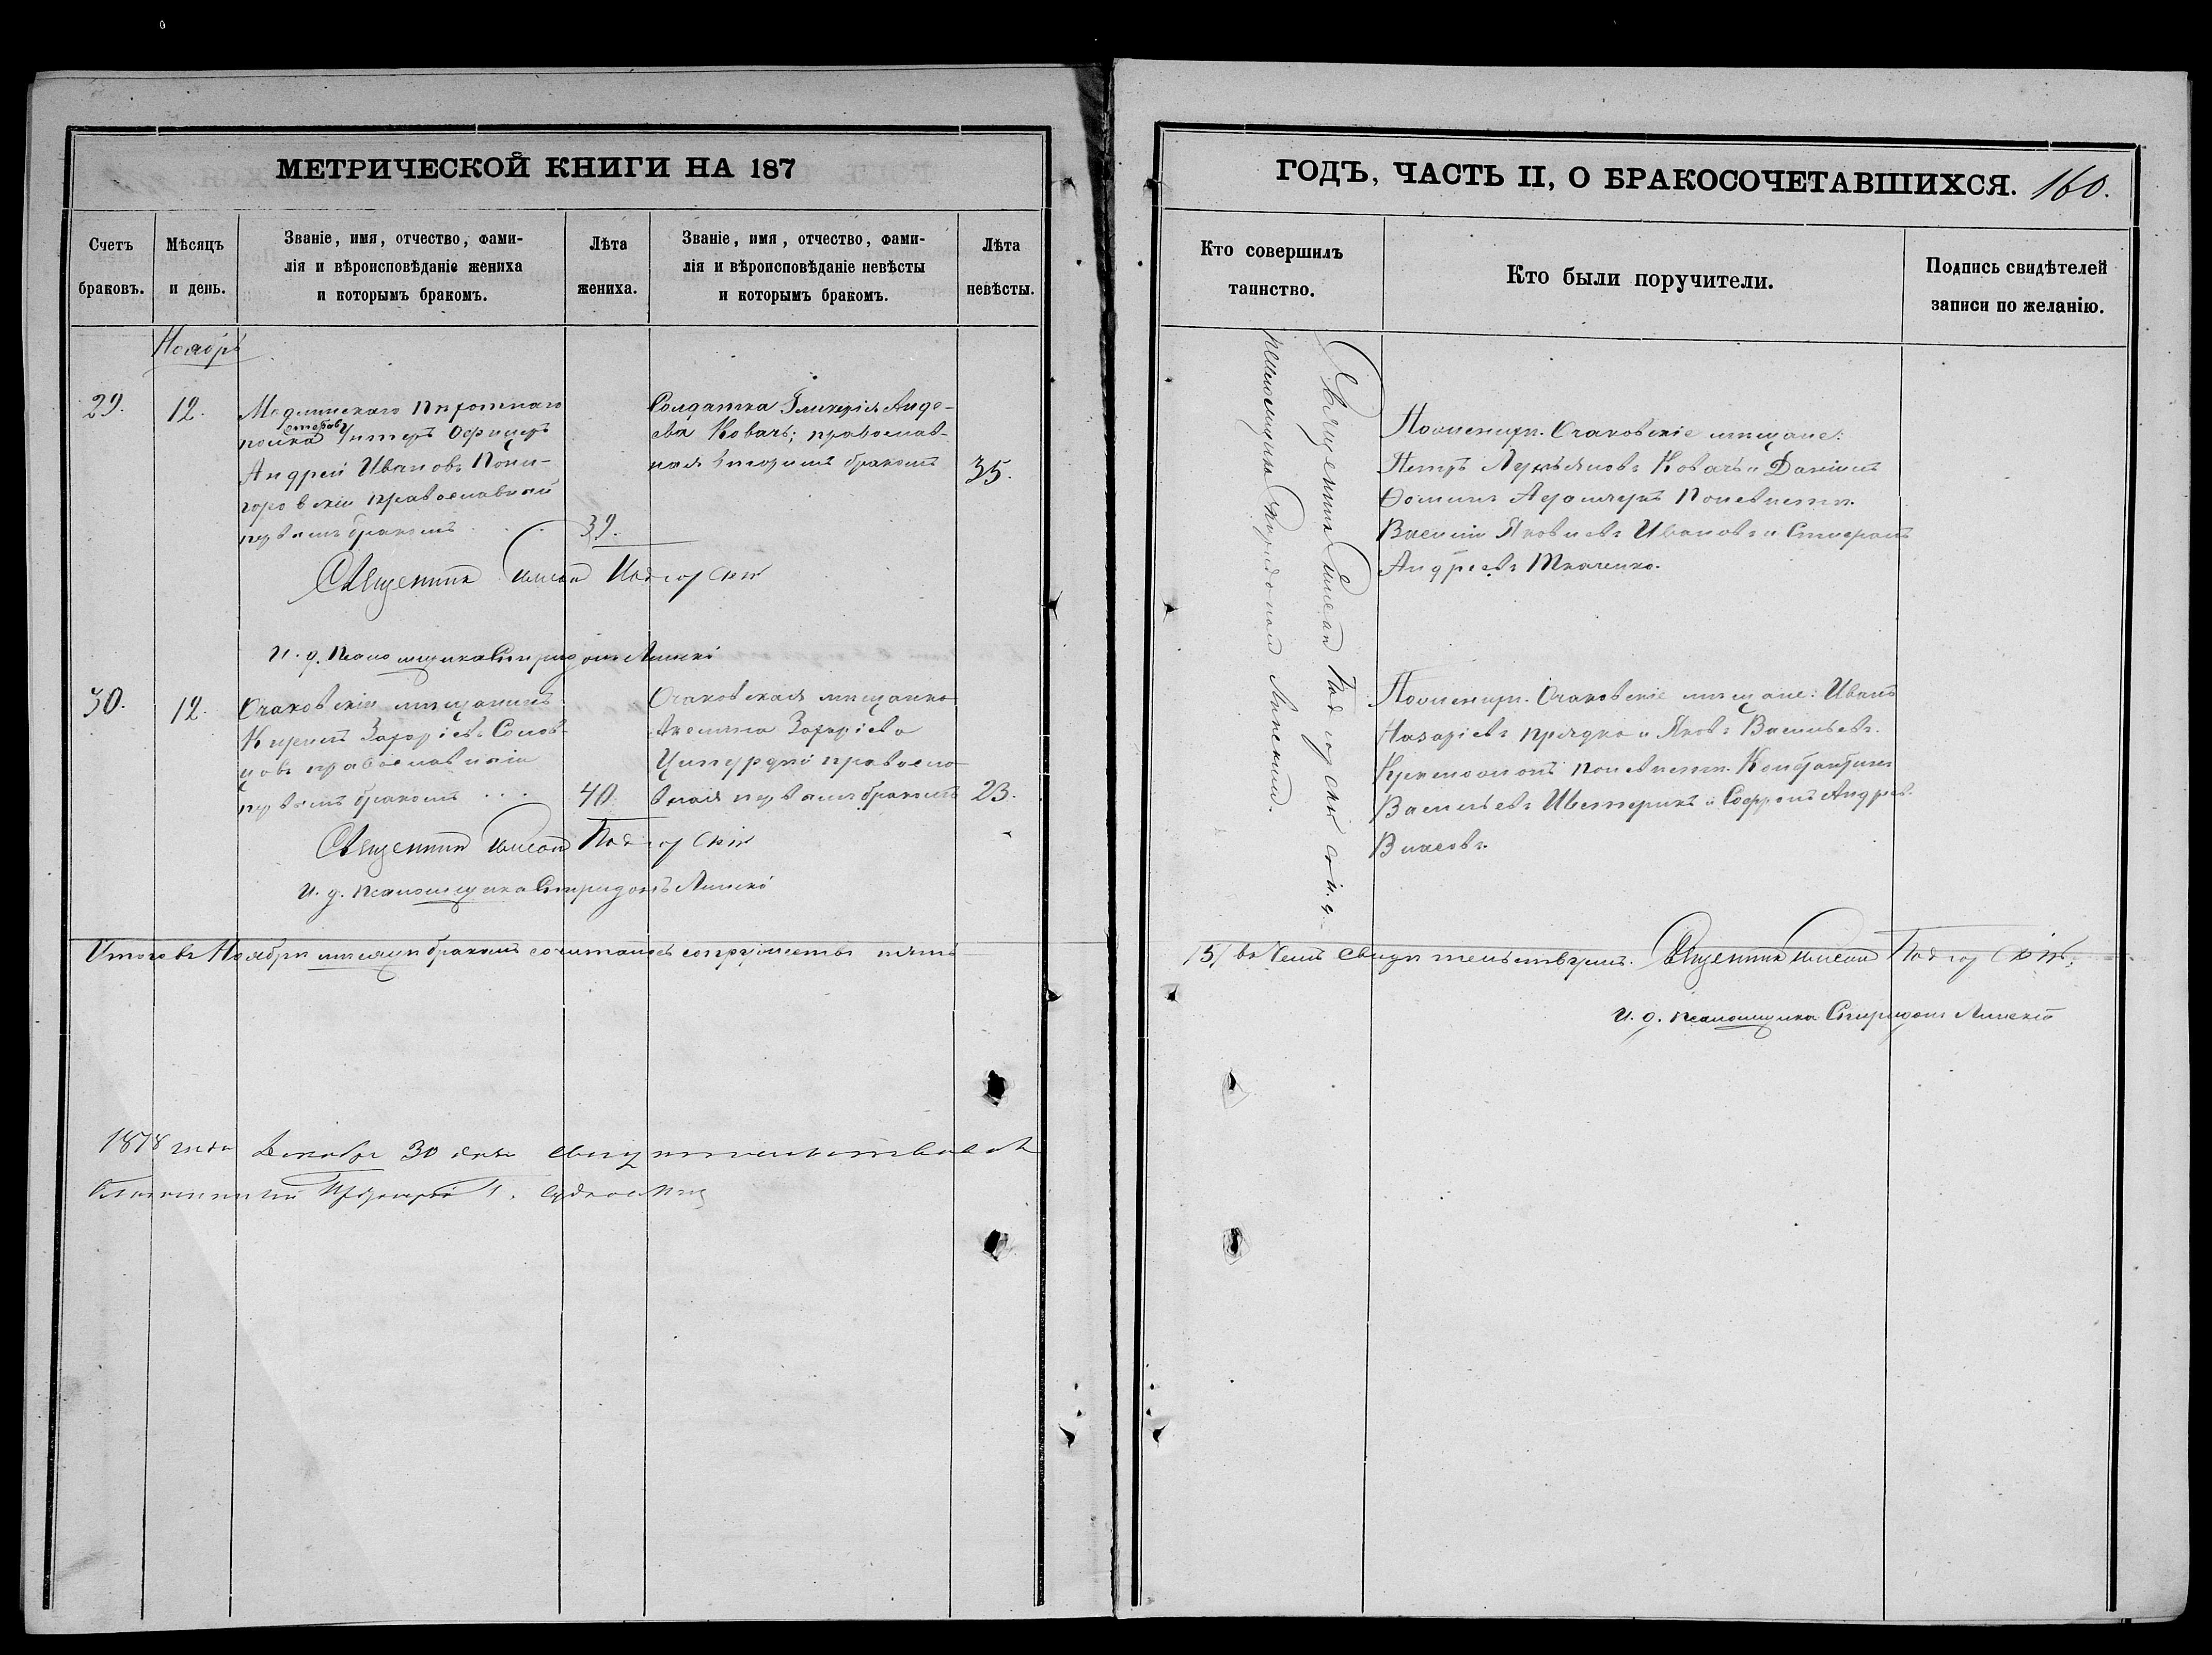 МЕТРИЧЕСКОЙ КНИГИ НА 187
Счетъ браковъ.
Мѣсяцъ и день.
Званіе, имя, отчество, фами-
лія и вѣроисповѣданіе жениха
и которымъ бракомъ.
Лѣта жениха.
Званіе, имя, отчество, фами-
лія и вѣроисповѣданіе невѣсты
и которымъ бракомъ.
Лѣта невѣсты.
Ноябрь
29.
12.
Модлинскаго Пѣхотнаго
полка Унтеръ Офицеръ
Андрей Ивановъ
православный
первымъ бракомъ
39.
Солдатка Гликерія Андре-
ева Ковачъ; православ-
ная вторымъ бракомъ
35.
Священникъ Симеонъ Подгорскій
И. д. Псаломщика Спиридонъ Липскій
30.
12.
Очаковскій мѣщанинъ
Кирилъ Захаріевъ
православный
первымъ бракомъ
40.
Очаковская мѣщанка
Захаріева
православ-
ная первымъ бракомъ
23.
Священникъ Симеонъ Подгорскій
И. д. Псаломщика Спиридонъ Липскій
Итого въ Ноябрѣ мѣсяцѣ бракомъ сочеталось супружествъ пять
1878 года Декабря 30 дня свидѣтельствовалъ
Благочинный
ГОДЪ, ЧАСТЬ II, О БРАКОСОЧЕТАВШИХСЯ. 160.
Кто совершилъ таинство.
Кто были поручители.
Подпись свидѣтелей
записи по желанію.
Священникъ Симеонъ Подгорскій съ и. д.
псаломщика Спиридономъ Липскимъ.
По женихѣ. Очаковскіе мѣщане:
Петръ Лукьяновъ Ковачъ и Даніилъ
Ѳоминъ по невѣстѣ.
Василій Яковлевъ Ивановъ и
Андреевъ Ткаченко.
По женихѣ. Очаковскіе мѣщане: Иванъ
Назаріевъ Прядко и Яковъ Васильевъ
по невѣстѣ. Константинъ
Васильевъ и Софронъ Андреевъ
Власовъ.
/5/ въ чемъ свидѣтельствуемъ. Священникъ Симеонъ Подгорскій,
И. д. Псаломщика Спиридонъ Липскій